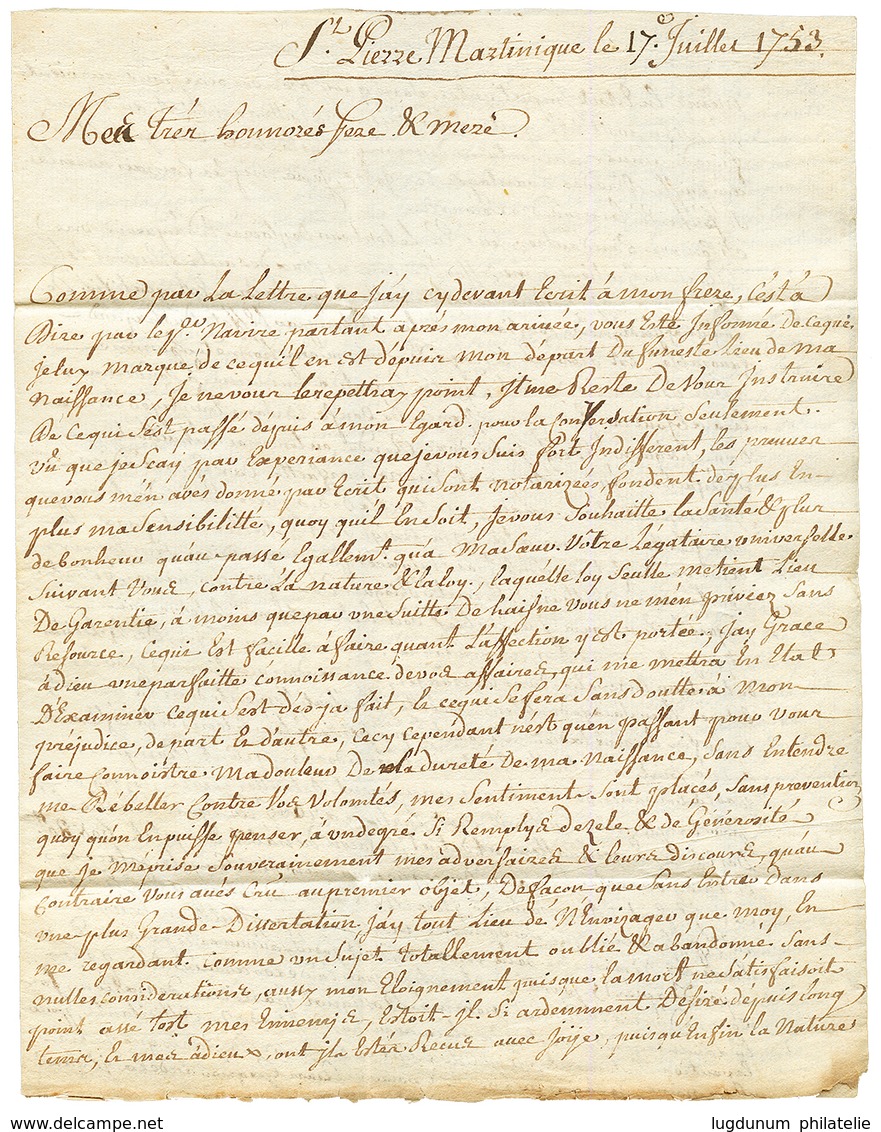 St. Pierre Martinique le 17e. Juillet 1753.
Mes trés honnorés Pere & mere
Comme par La Lettre que J'ay cydevant Ecrit á mon frere, C'est á
Dire par le pr. Navire partant aprés mon arivée, vous Este Informé De cequi
Je luy marque, de cequ'il en est dépuis mon départ Du funeste Lieu de ma
Naissance, Je ne vous le repettray point, Il me Reste De Vous Instruire
De cequi S'est passé dépuis á mon Egard. pour la Conversation Seulement.
Vû que je Scay par Experiance que je vous Suis fort Indifferent, les preuves
que vous m'én avés donné par Ecrit qui Sont notarizées, fondent dé plus En
plus ma Sensibilitté, quoy qu'il En Soit, Je vous Souhaitte la Santé & plus
de bonheur qu'au passé Egallemt. qu'a Ma Sœur Vôtre Légataire universelle
Suivant Vous, contre La nature & la loy, laquélle loy Seulle me tient Lieu
De Garentie, á moins que par une Suitte De haisne vous ne m'én priviez Sans
Resource, cequi Est facille á faire quant L'affection y est portée, Jay Grace
á dieu une parfaitte connoissance de vos affaires, qui me mettra En Etat
D'Examiner cequi S'est dés ja fait, & cequi Se fera Sans doutte á Mon
préjudice, de part & d'autre, Cecy cependant n'ést qu'én passant pour vous
faire Connoistre Ma douleur De la dureté De ma Naissance, Sans Entendre
me Rébeller Contre Vos Volomtés, mes Sentiment Sont placés, Sans prevention
quoy qu'on En puisse penser, á un degré Si Remplys de zele & de Génerosité
que je Méprise Souverainement mes adversaires & leurs discours, qu'au
Contraire Vous avés Crû au premier objet, De façon que Sans Entre Dans
une plus Grande Dissertation J'áy tout Lieu de N'Envizager que moy, En
me regardant comme un Sujet totallement oublié & abandonné Sans
nulles considerations, aussy mon Eloignement puisque la mort ne Satisfaisoit
point assé tost mes Ennemis, Estoit-il Si ardemment Désiré dépuis long
tems, & mes ádieux, ont ils Estés Recus avec Joÿe, puisqu'Enfin la Nature
www.delcampe.net
lugdunum philatelie